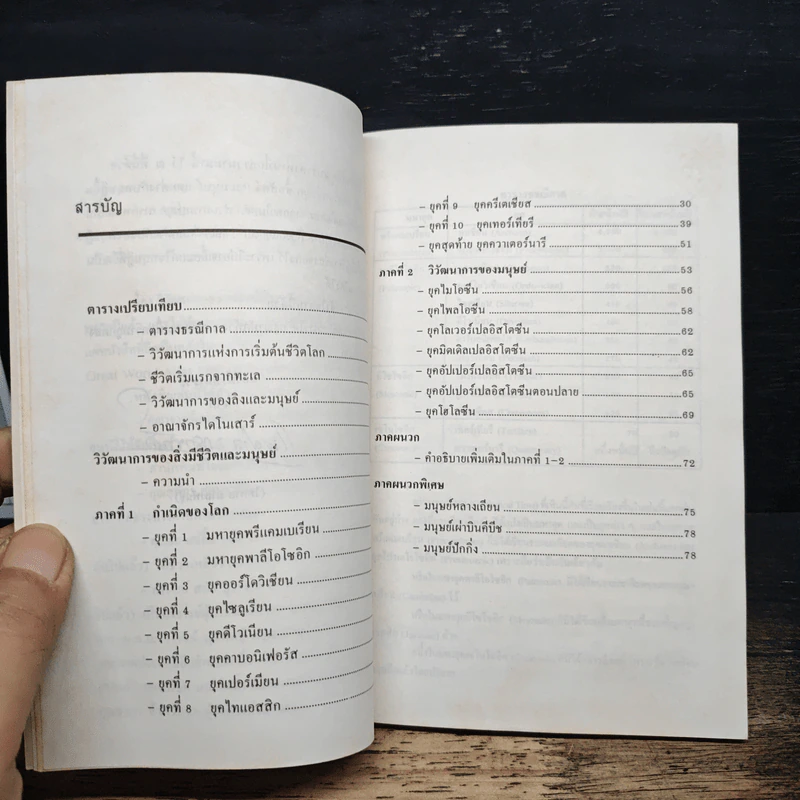 สารบัญ
ตารางเปรียบเทียบ
- ตารางธรณีกาล
- วิวัฒนาการแห่งการเริ่มต้นชีวิตโลก
- ชีวิตเริ่มแรกจากทะเล
- วิวัฒนาการของลิงและมนุษย์
- อาณาจักรไดโนเสาร์
วิวัฒนาการของสิ่งมีชีวิตและมนุษย์
- ความนำ
ภาคที่ 1 กำเนิดของโลก
- ยุคที่ 1 มหายุคพรีแคมเบเรียน
- ยุคที่ 2 มหายุคพาลีโอโซอิก
- ยุคที่ 3 ยุคออร์โดวิเชียน
- ยุคที่ 4 ยุคไซลูเรียน
- ยุคที่ 5 ยุคดีโวเนียน
- ยุคที่ 6 ยุคคาบอนิเฟอรัส
- ยุคที่ 7 ยุคเปอร์เมียน
- ยุคที่ 8 ยุคไทแอสสิก
- ยุคที่ 9 ยุคครีเตเชียส 30
- ยุคที่ 10 ยุคเทอร์เทียรี 39
- ยุคสุดท้าย ยุคควาเตอร์นารี 51
ภาคที่ 2 วิวัฒนาการของมนุษย์ 53
- ยุคไมโอซีน 56
- ยุคไพลโอซีน 58
- ยุคโลเวอร์เปลอิสโตซีน 62
- ยุคมิดเดิลเปลอิสโตซีน 62
- ยุคอัปเปอร์เปลอิสโตซีน 65
- ยุคอัปเปอร์เปลอิสโตซีนตอนปลาย 65
- ยุคโฮโลซีน 69
ภาคผนวก
- คำอธิบายเพิ่มเติมในภาคที่ 1-2 72
ภาคผนวกพิเศษ
- มนุษย์หลางเถียน 75
- มนุษย์เผ่าบินคีบีช 78
- มนุษย์ปักกิ่ง 78